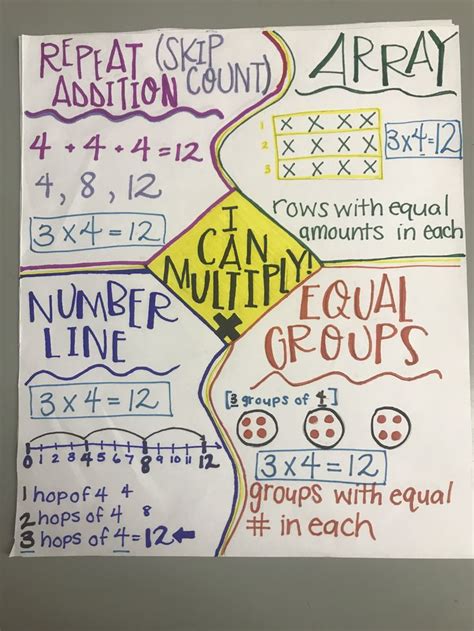 REPEAT (SKIP
ADDITION COUNT)
4 + 4 + 4 = 12
4, 8, 12
3 x 4 = 12
ARRAY
1 X X X X
2 X X X X
3 X X X X
3x4=12
rows with equal
amounts in each
I
CAN
MULTIPLY!
X
NUMBER
LINE
3 x 4 = 12
0 1 2 3 4 5 6 7 8 9 10 11 12
1 hop of 4 4
2 hops of 4 8
3 hops of 4=12←
EQUAL
GROUPS
[3 groups of 4]
3 x 4 = 12
groups with equal
# in each